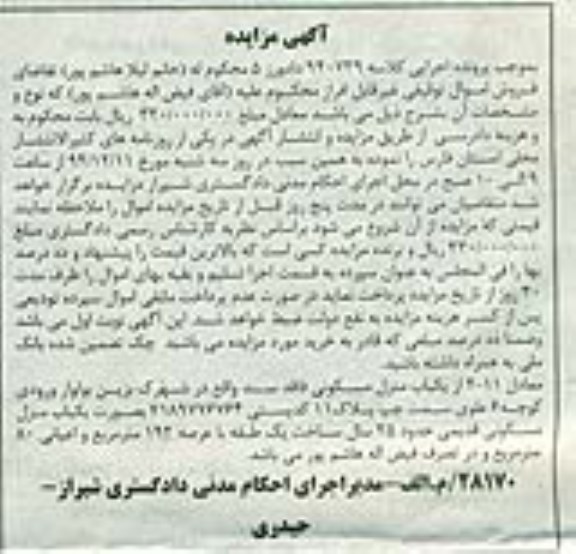 آگهی مزایده
بموجب پرونده اجرایی کلاسه ۷۳۹-۹۴۰ دادورز ۵ محکوم له (خانم لیلا هاشم پور) تقاضای
فروش اموال توقیفی غیرقابل افراز محکوم علیه (آقای فیض اله هاشم پور) که نوع و
مشخصات آن بشرح ذیل می باشد معادل مبلغ ریال بابت محکوم به
و هزینه دادرسی از طریق مزایده و انتشار آگهی در یکی از روزنامه های کثیرالانتشار
محلی استان فارس را نموده به همین سبب در روز سه شنبه مورخ از ساعت
۹ الی ۱۰ صبح در محل اجرای احکام مدنی دادگستری شیراز مزایده برگزار خواهد
شد متقاضیان می توانند در مدت پنج روز قبل از تاریخ مزایده اموال را ملاحظه نمایند
قیمتی که مزایده از آن شروع می شود براساس نظریه کارشناس رسمی دادگستری مبلغ
ریال و برنده مزایده کسی است که بالاترین قیمت را پیشنهاد و ده درصد
بها را فی المجلس به عنوان سپرده به قسمت اجرا تسلیم و بقیه بهای اموال را ظرف مدت
۳۰ روز از تاریخ مزایده پرداخت نماید در صورت عدم پرداخت مابقی اموال سپرده تودیعی
پس از کسر هزینه مزایده به نفع دولت ضبط خواهد شد. این آگهی نوبت اول می باشد
وضمنا ده درصد مبلغی که قادر به خرید مورد مزایده می باشید چک تضمین شده بانک
ملی به همراه داشته باشید.
معادل ۲۰۱۱ از یکباب منزل مسکونی فاقد سند واقع در شهرک بزین بولوار ورودی
کوچه ۶ علوی سمت چپ پلاک ۱۱ کدپستی بصورت یکباب منزل
مسکونی قدیمی حدود ۲۵ سال ساخت یک طبقه با عرصه ۱۹۳ مترمربع و اعیانی ۸۰
مترمربع و در تصرف فیض اله هاشم پور می باشد
۲۸۱۷۰/م.الف-مدیراجرای احکام مدنی دادگستری شیراز-
حیدری